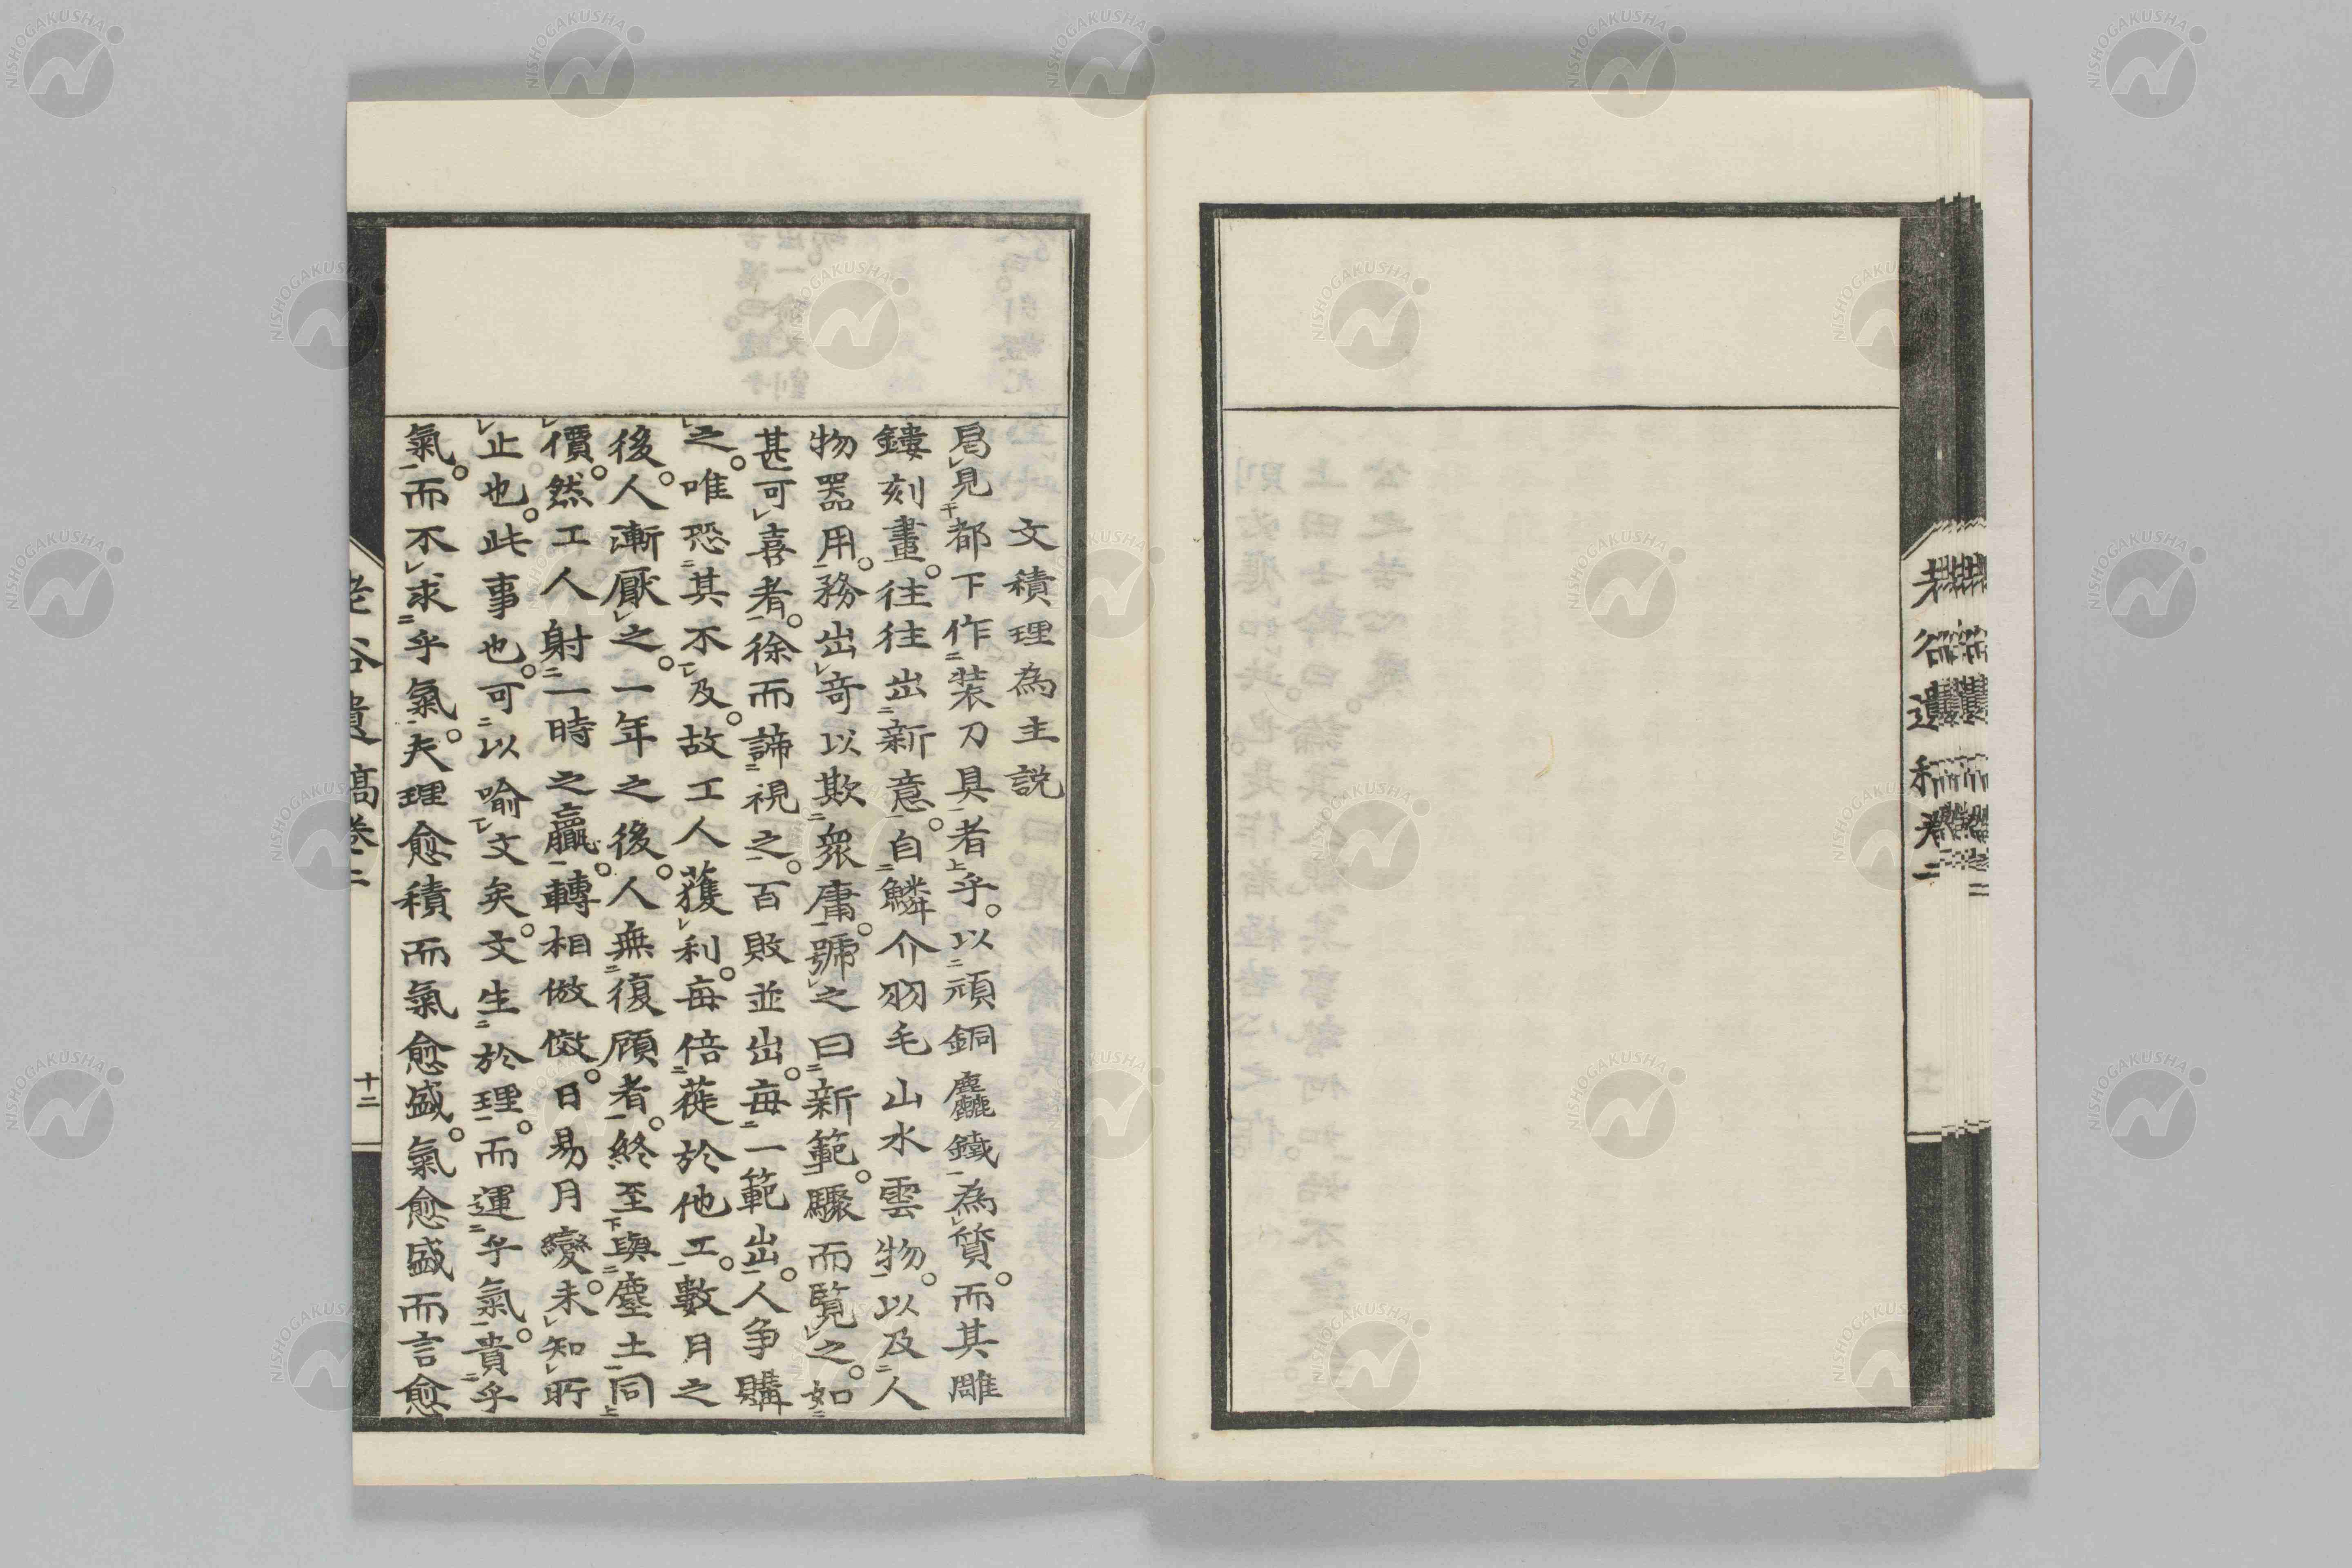 老谷遺稿卷二
文積理為主說
曷見都下作裝刀具者乎。以頑銅麤鐵為質。而其雕
鏤刻畫。往往出新意。自鱗介羽毛山水雲物。以及人
物器用。務出奇以欺衆庸。號之曰新範。驟而覽之。如
甚可喜者。徐而諦視之。百敗並出。每一範出。人爭購
之。唯恐其不及。故工人獲利。每倍蓰於他工。數月之
後。人漸厭之。一年之後。人無復顧者。終至與塵土同
價。然工人射一時之贏。轉相倣傚。日易月變。未知所
止也。此事也。可以喻文矣。文生於理。而運乎氣。貴乎
氣。而不求乎氣。夫理愈積而氣愈盛。氣愈盛而言愈
老谷遺稿卷二
十二
NISHOGAKUSHA